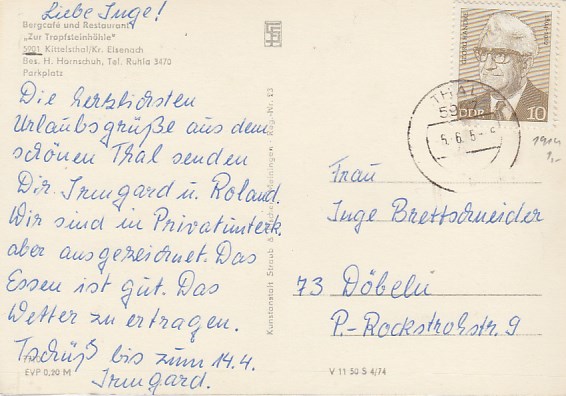 Liebe Inge!
Bergcafé und Restaurant
"Zur Tropfsteinhöhle"
5901 Kittelsthal/Kr. Eisenach
Bes. H. Hornschuh, Tel. Ruhla 3470
Parkplatz
Die herzlichsten
Urlaubsgrüße aus dem
schönen Thal senden
Dir Irmgard u. Roland.
Wir sind in Privatunterk.
aber ausgezeichnet. Das
Essen ist gut. Das
Wetter zu ertragen.
Tschüß bis zum 14.4.
Irmgard.
EVP 0,20 M
Kunstanstalt Straub & Meiningen Reg.-Nr. 23
V 11 50 S 4/74
DDR 10
THAL
5.6.5
1914
1,-
Frau
Inge Brettschneider
73 Döbeln
P.-Rockstrohstr. 9